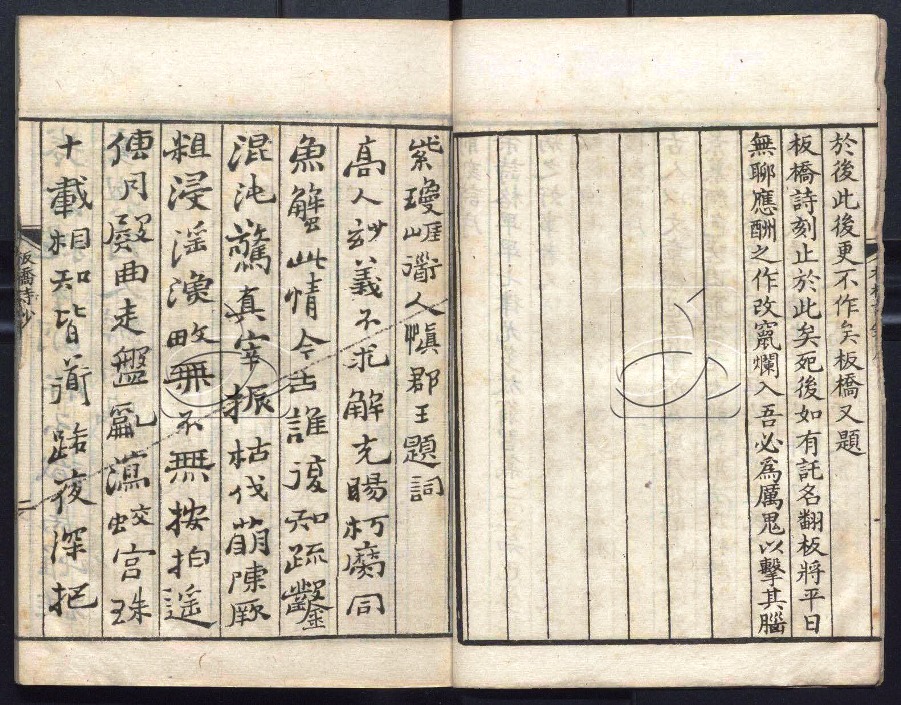 於後此後更不作矣板橋又題
板橋詩刻止於此矣死後如有託名翻板將平日
無聊應酬之作改竄爛入吾必為厲鬼以擊其腦
紫瓊崖道人慎郡王題詞
高人妙義不求解充腸朽腐同
魚蟹此情今古誰復知疏鑿
混沌驚真宰振枯伐萌陳厥
粗浸淫漁畋無不無按拍遙
傳月殿曲走盤亂瀉蛟宮珠
十載相知皆道路夜深把
板橋詩鈔